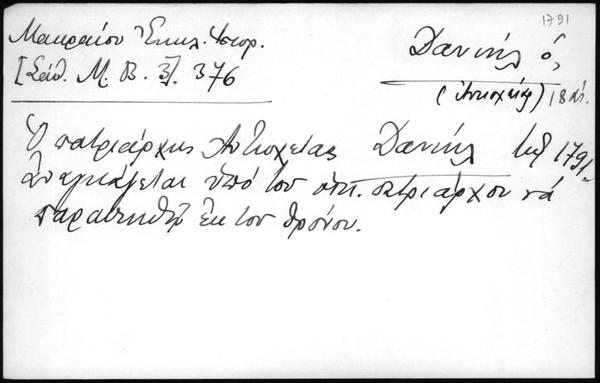 1791
Μακραίου Ἐκκλ. Ἱστορ.
[Σάθ. Μ. Β. 3]. 376
Δανιήλ ὁ,
(Ἀντιοχείας) 18 αἰ.
Ὁ πατριάρχης Ἀντιοχείας Δανιήλ τῷ 1791
ἀναγκάζεται ὑπό τοῦ οἰκ. πατριάρχου νά
παραιτηθῇ ἐκ τοῦ θρόνου.